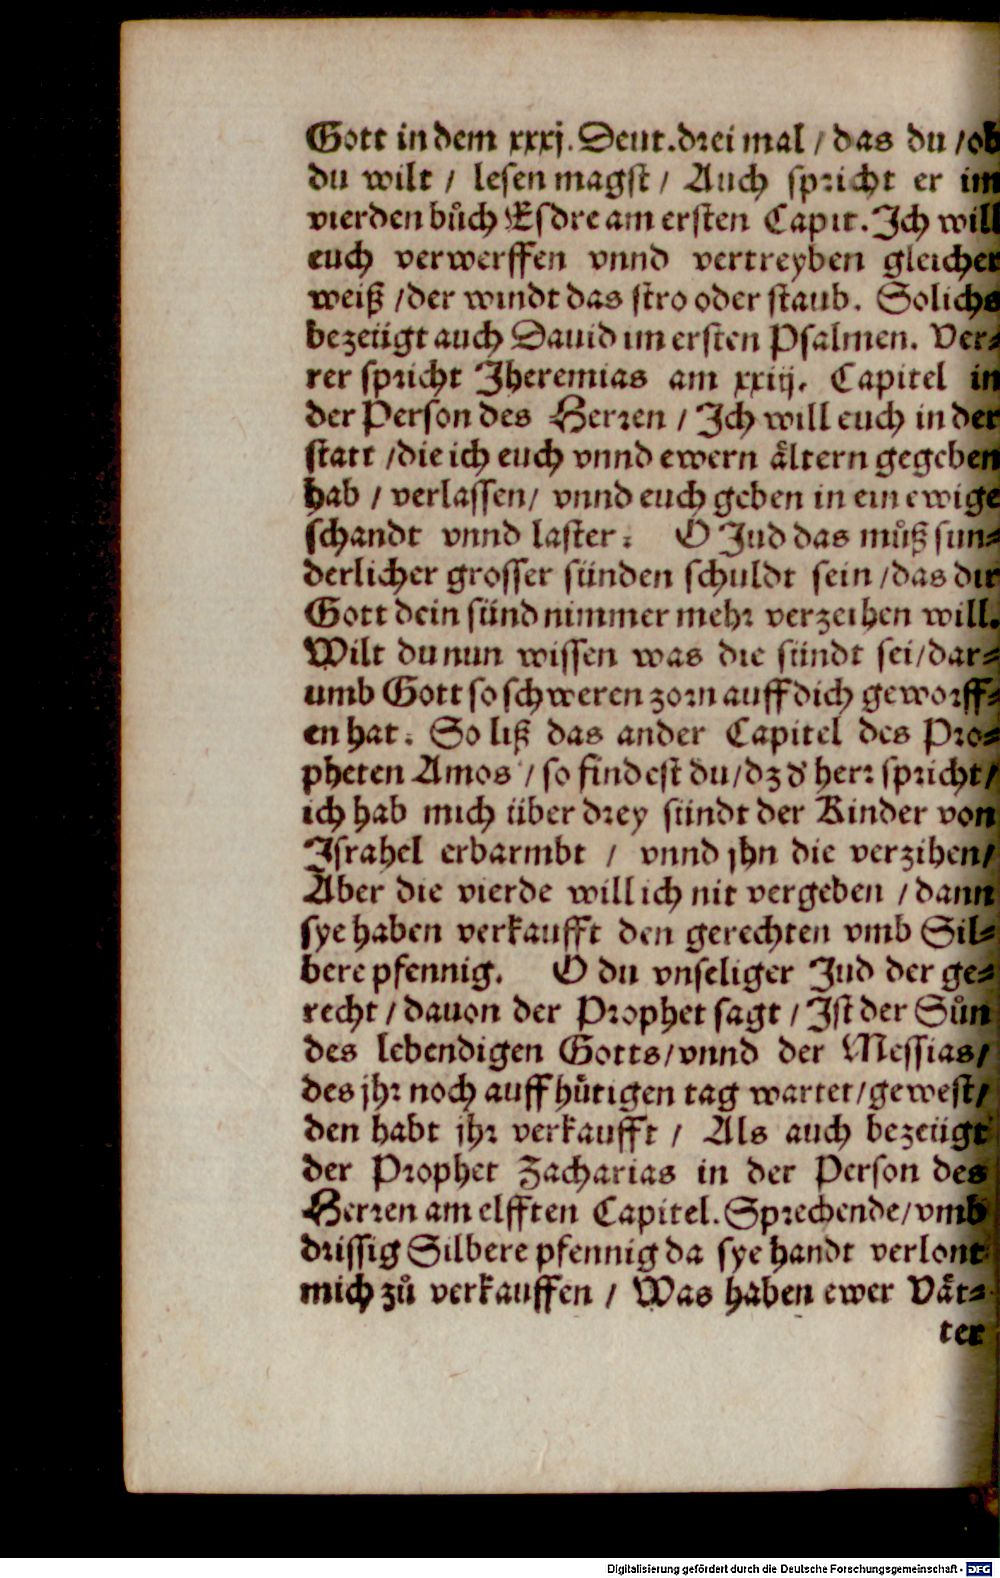 Gott in dem xxxj. Deut. drei mal / das du / ob
du wilt / lesen magst / Auch spricht er im
vierden bůch Esdre am ersten Capit. Ich will
euch verwerffen vnnd vertreyben gleicher
weiß / der windt das stro oder staub. Solichs
bezeügt auch Dauid im ersten Psalmen. Ver⸗
rer spricht Jheremias am xxiij. Capitel in
der Person des Herren / Ich will euch in der
statt / die ich euch vnnd ewern ältern gegeben
hab / verlassen / vnnd euch geben in ein ewige
schandt vnnd laster. O Jud das můß sun⸗
derlicher grosser sünden schuldt sein / das dir
Gott dein sünd nimmer mehr verzeihen will.
Wilt du nun wissen was die sündt sei / dar⸗
umb Gott so schweren zorn auff dich geworff⸗
en hat. So liß das ander Capitel des Pro⸗
pheten Amos / so findest du / dz d' herr spricht /
ich hab mich über drey sündt der Kinder von
Israhel erbarmbt / vnnd jhn die verzihen /
Aber die vierde will ich nit vergeben / dann
sye haben verkaufft den gerechten vmb Sil⸗
bere pfennig. O du vnseliger Jud der ge⸗
recht / dauon der Prophet sagt / Ist der Sůn
des lebendigen Gotts / vnnd der Messias /
des jhr noch auff hütigen tag wartet / gewest /
den habt jhr verkaufft / Als auch bezeügt
der Prophet Zacharias in der Person des
Herren am elfften Capitel. Sprechende / vmb
drissig Silbere pfennig da sye handt verlont
mich zů verkauffen / Was haben ewer Vät⸗
ter
Digitalisierung gefördert durch die Deutsche Forschungsgemeinschaft - DFG